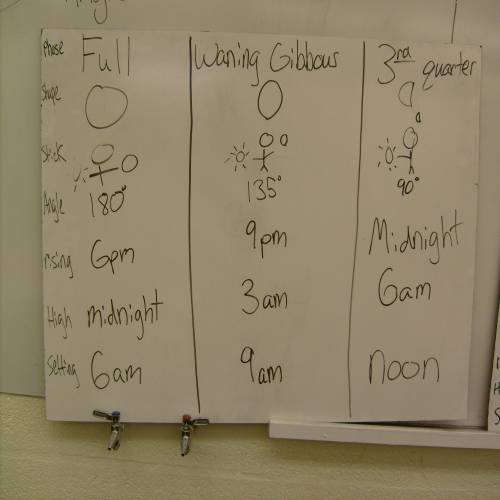 Phase Full Waning Gibbous 3rd quarter
Shape
Stick
Angle 180° 135° 90°
rising 6pm 9pm Midnight
High midnight 3am 6am
Setting 6am 9am noon